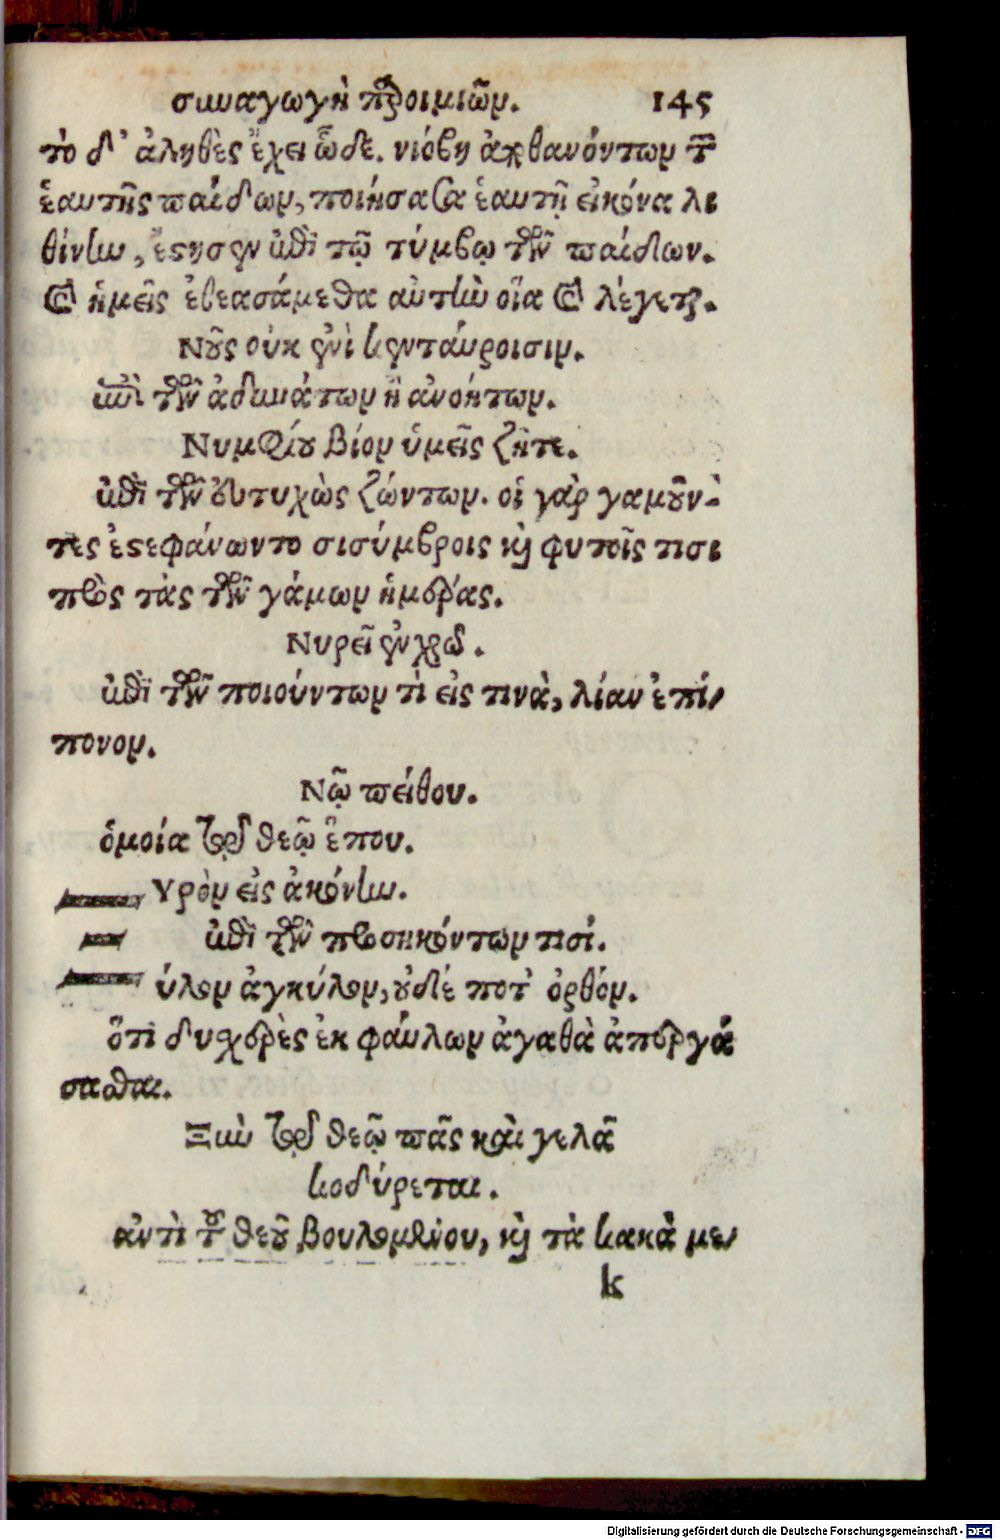 συναγωγὴ παροιμιῶν. 145
τὸ δ' ἀληθὲς ἔχει ὧδε. νιόβη ἀποθανόντων τῶν
ἑαυτῆς παίδων, ποιήσασα ἑαυτῇ εἰκόνα λι
θίνην, ἔστησεν ἐπὶ τῷ τύμβῳ τῶν παίδων.
καὶ ἡμεῖς ἐθεασάμεθα αὐτὴν οἵα καὶ λέγεται.
Νοῦς οὐκ ἐνὶ κενταύροισιν.
ἐπὶ τῶν ἀδυνάτων ἢ ἀνοήτων.
Νυμφίου βίον ὑμεῖς ζῆτε.
ἐπὶ τῶν εὐτυχὼς ζώντων. οἱ γὰρ γαμοῦν-
τες ἐστεφάνωντο σισύμβροις καὶ φυτοῖς τισι
πρὸς τὰς τῶν γάμων ἡμέρας.
Νυρεῖ ἐν χρῷ.
ἐπὶ τῶν ποιούντων τὶ εἰς τινὰ, λίαν ἐπί-
πονον.
Νῷ πείθου.
ὁμοία τῷ θεῷ ἕπου.
Υρὸν εἰς ἀκόνην.
ἐπὶ τῶν προσηκόντων τισί.
ύλον ἀγκύλον, οὐδέ ποτ' ὀρθόν.
ὅτι δυχερὲς ἐκ φαύλων ἀγαθὰ ἀπεργά
σασθαι.
Ξὺν τῷ θεῷ πᾶς καὶ γελᾶ
κοδύρεται.
ἀντὶ τοῦ θεοῦ βουλομένου, καὶ τὰ κακὰ με-
k
Digitalisierung gefördert durch die Deutsche Forschungsgemeinschaft - DFG